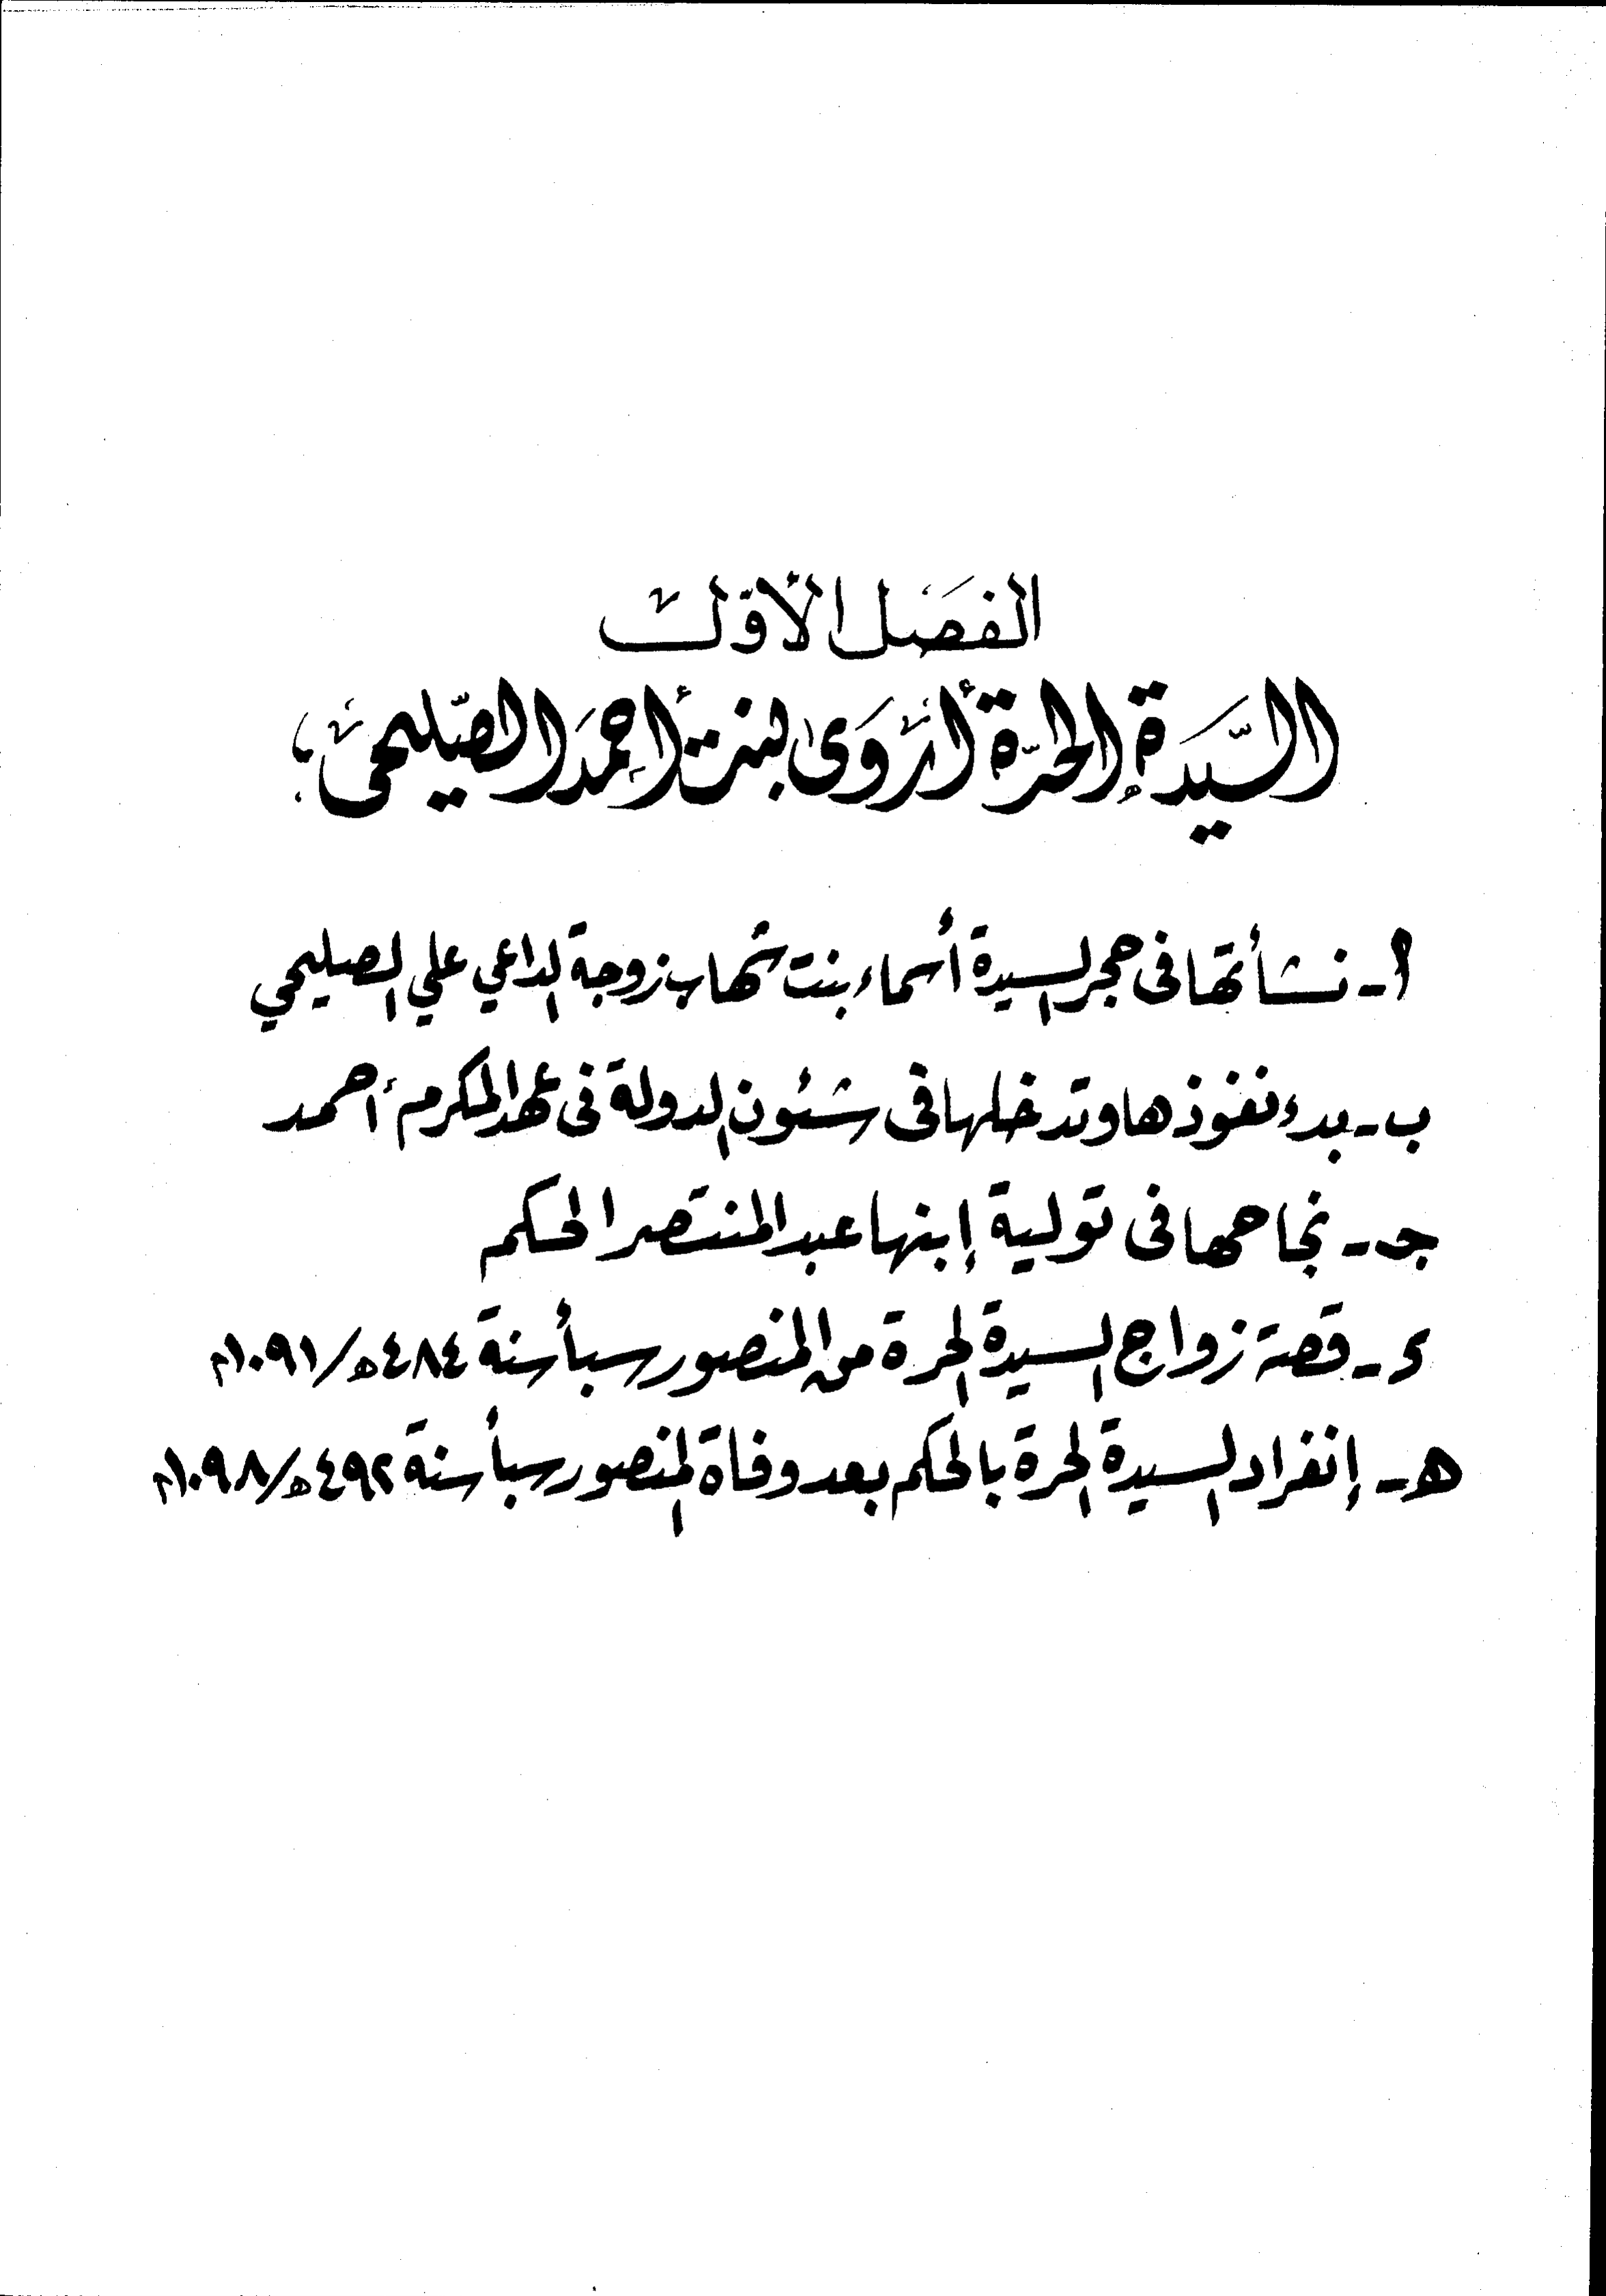 الفصل الأول
السَّيدة الحرّة أروَى بنت أحمد الصّليحي؛
أ - نشأتها فى حجر السيدة أسماء بنت شهاب زوجة الداعي علي الصليحي
ب - بدء نفوذها وتدخلها فى شئون الدولة فى عهد المكرم أحمد
جـ - نجاحها فى تولية إبنها عبد المنتصر الحكم
د - قصة زواج السيدة الحرة من المنصور سبأ سنة ٤٨٤هـ/١٠٩١م
هـ - إنفراد السيدة الحرة بالحكم بعد وفاة المنصور سبأ سنة ٤٩٢هـ/١٠٩٨م